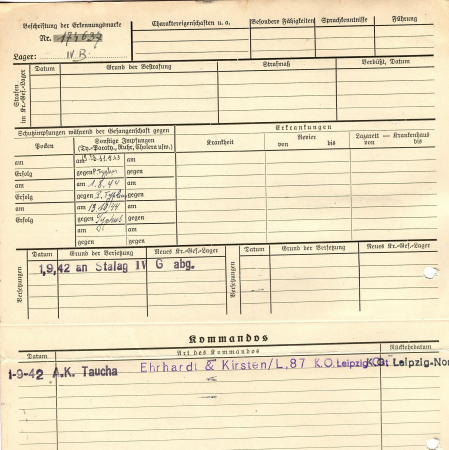 Beschriftung der Erkennungsmarke
Nr. 174637
Lager: IV B
Charaktereigenschaften u. a.
Besondere Fähigkeiten
Sprachkenntnisse
Führung
Strafen im Kr.-Gef.-Lager
Datum
Grund der Bestrafung
Strafmaß
Verbüßt, Datum
Schutzimpfungen während der Gefangenschaft gegen
Erkrankungen
Pocken
Sonstige Impfungen
(Ty.-Paraty., Ruhr, Cholera usw.)
Krankheit
Revier
von bis
Lazarett — Krankenhaus
von bis
am am
Erfolg gegen
am am 1.8.44
Erfolg gegen
am am
Erfolg gegen Typhus
am am
gegen
Versetzungen
Datum
Grund der Versetzung
Neues Kr.-Gef.-Lager
1.9.42 an Stalag IV G abg.
Versetzungen
Datum
Grund der Versetzung
Neues Kr.-Gef.-Lager
Kommandos
Datum
Art des Kommandos
Rückkehrdatum
1-9-42 A.K. Taucha Ehrhardt & Kirsten/L.87 K.O. Leipzig-Ost Leipzig-No